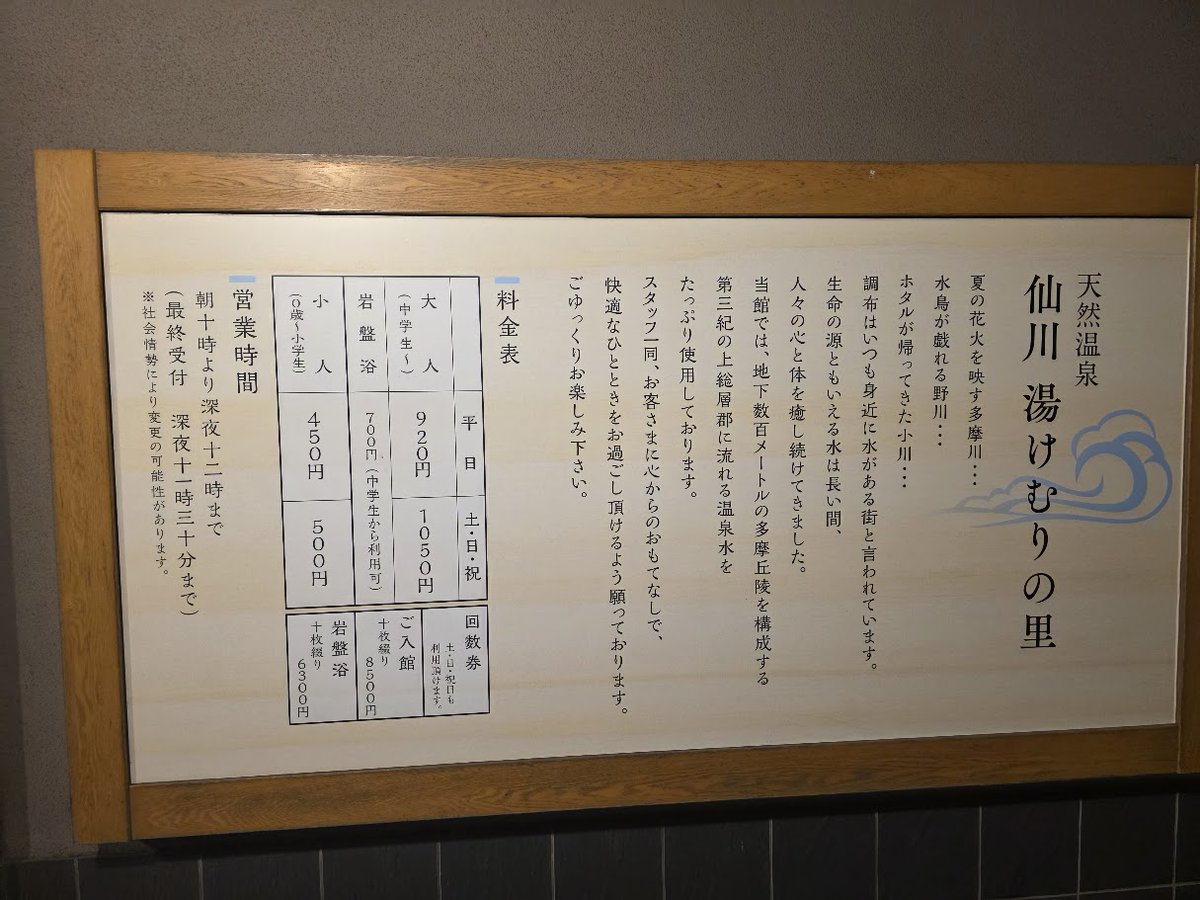 天然温泉
仙川 湯けむりの里
夏の花火を映す多摩川・・・
水鳥が戯れる野川・・・
ホタルが帰ってきた小川・・・
調布はいつも身近に水がある街と言われています。
生命の源ともいえる水は長い間、
人々の心と体を癒し続けてきました。
当館では、地下数百メートルの多摩丘陵を構成する
第三紀の上総層郡に流れる温泉水を
たっぷり使用しております。
スタッフ一同、お客さまに心からのおもてなしで、
快適なひとときをお過ごし頂けるよう願っております。
ごゆっくりお楽しみ下さい。
料金表
平日
土・日・祝
大人
(中学生~)
920円
1050円
岩盤浴
700円(中学生から利用可)
小人
(0歳~小学生)
450円
500円
回数券
土・日・祝日も
利用頂けます。
ご入館
十枚綴り
8500円
岩盤浴
十枚綴り
6300円
営業時間
朝十時より深夜十二時まで
(最終受付 深夜十一時三十分まで)
※社会情勢により変更の可能性があります。